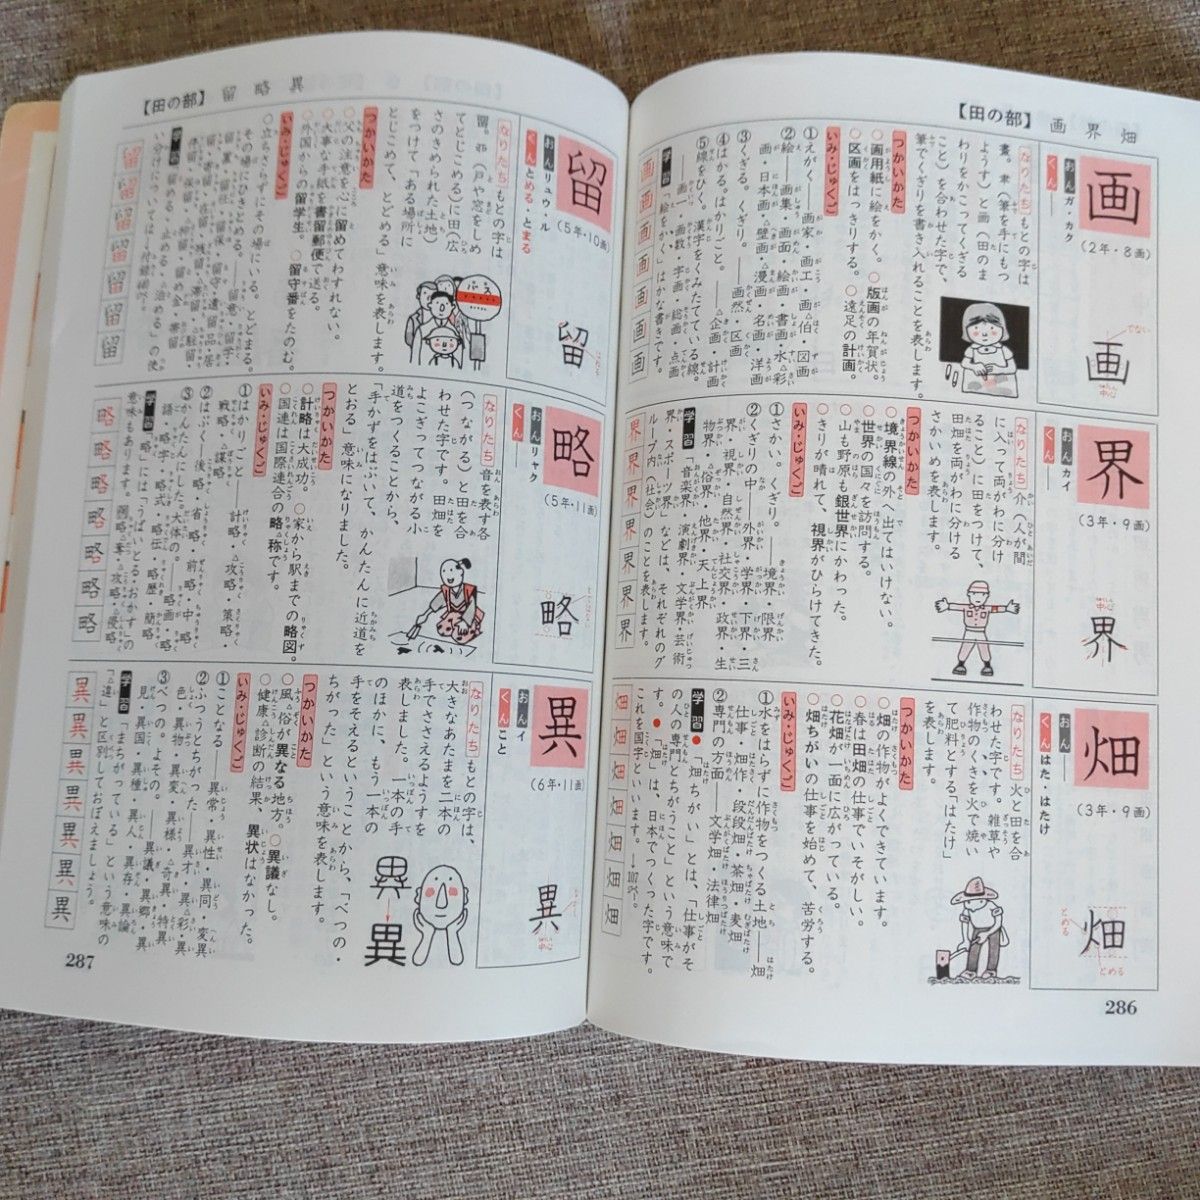 【田の部】 画 界 畑
画
おん ガ・カク
くん ――
(2年・8画)
画
でない
中心
なりたち もとの字は
畫。聿(筆を手にもつ
ようす)と画(田のま
わりをかこってくぎる
こと)を合わせた字で、
筆でくぎりを書き入れることを表します。
つかいかた
○画用紙に絵をかく。○版画の年賀状。
○区画をはっきりする。○遠足の計画。
いみ・じゅくご
①えがく。――画家・画工・画△伯・図画
②絵。――画集・画面・絵画・書画・水△彩
画・日本画・△壁画・△漫画・名画・洋画
③くぎる。くぎり。――画然・区画
④はかる。はかりごと。――△企画・計画
⑤線をひく。漢字をくみたてている線。
――画一・画数・字画・総画・点画
学習 「絵をかく」はかな書きです。
画画画画画画画画
界
おん カイ
くん ――
(3年・9画)
界
中心
なりたち 介(人が間
に入って両がわに分け
ること)に田をつけて、
田畑を両がわに分ける
さかいめを表します。
つかいかた
○境界線の外へ出てはいけない。
○世界の国々を訪問する。
○山も野原も銀世界にかわった。
○きりが晴れて、視界がひらけてきた。
いみ・じゅくご
①さかい。くぎり。――境界・限界
②くぎりの中――外界・学界・下界・三
界・視界・自然界・社交界・政界・生
物界・△俗界・他界・天上界
学習 「音楽界・演劇界・文学界・芸術
界・スポーツ界」などは、それぞれのグ
ループ内(社会)のことを表します。
界界界界界界界
畑
おん ――
くん はた・はたけ
(3年・9画)
畑
とめる
とめる
なりたち 火と田を合
わせた字です。雑草や
作物のくきを火で焼い
て肥料とする「はたけ」
を表します。
つかいかた
○畑の作物がよくできています。
○春は田畑の仕事でいそがしい。
○花畑が一面に広がっている。
○畑ちがいの仕事を始めて、苦労する。
いみ・じゅくご
①水をはらずに作物をつくる土地――畑
仕事・畑作・段段畑・茶畑・麦畑
②専門の方面――文学畑・法律畑
学習 ●「畑ちがい」とは、「仕事がそ
の人の専門とちがうこと」という意味で
す。●「畑」は、日本でつくった字です。
これを国字といいます。→107ページ
畑畑畑畑畑畑畑
286
【田の部】 留 略 異
留
おん リュウ・ル
くん とめる・とまる
(5年・10画)
留
なりたち もとの字は
(戸や窓をしめ
てとじこめる)に田(広
さのきめられた土地)
をつけて「ある場所に
とじこめて、とどめる」意味を表します。
つかいかた
○父の注意を心に留めてわすれない。
○大事な手紙を書留郵便で送る。
○外国からの留学生。○留守番をたのむ。
いみ・じゅくご
○立ちさらずにその場にいる。とどまる。
その場にひきとめる。――留意・留学・
学習
バス
略
おん リャク
くん ――
(5年・11画)
略
なりたち 音を表す各
(つながる)と田を合
わせた字です。田畑を
よこぎってつながる小
道をつくることから、
「手かずをはぶいて、かんたんに近道を
とおる」意味になりました。
つかいかた
○計略は大成功。○家から駅までの略図。
○国連は国際連合の略称です。
いみ・じゅくご
①はかりごと――計略・攻略・策略・
戦略・△謀略
②はぶく――後略・省略・前略・中略
③かんたんにした。大体の。――略画・略
語・略字・略式・略伝・略歴・簡略
学習 「略」には「うばいとる・おかす」の
意味もあります。
略略略略略略略
異
おん イ
くん こと
(6年・11画)
異
中心
なりたち もとの字は、
大きなあたまを二本の
手でささえるようすを
表しました。一本の手
のほかに、もう一本の
手をそえるということから、「べつの・
ちがった」という意味を表します。
異
つかいかた
○風△俗が異なる地方。○異議なし。
○健康診断の結果、異状はなかった。
いみ・じゅくご
①ことなる――異常・異性・異同・変異
②ふつうとちがった。――異才・異△彩・異
色・異物・異変・異様・△奇異・特異
③べつの。よその。――異議・異郷・異
見・異国・異種・異人・異存・異論
学習 「まちがっている」という意味の
「違」と区別しておぼえましょう。
異異異異異異異
287